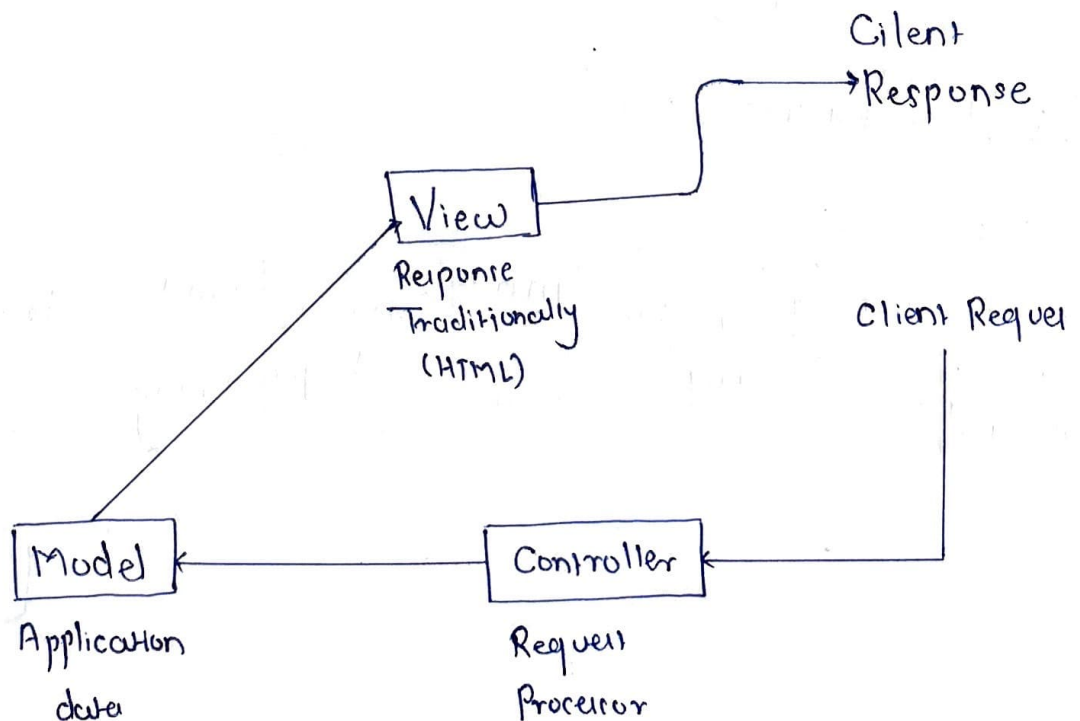 Cilent
Response
View
Response
Traditionally
(HTML)
Client Reques
Model
Application
data
Controller
Request
Processor